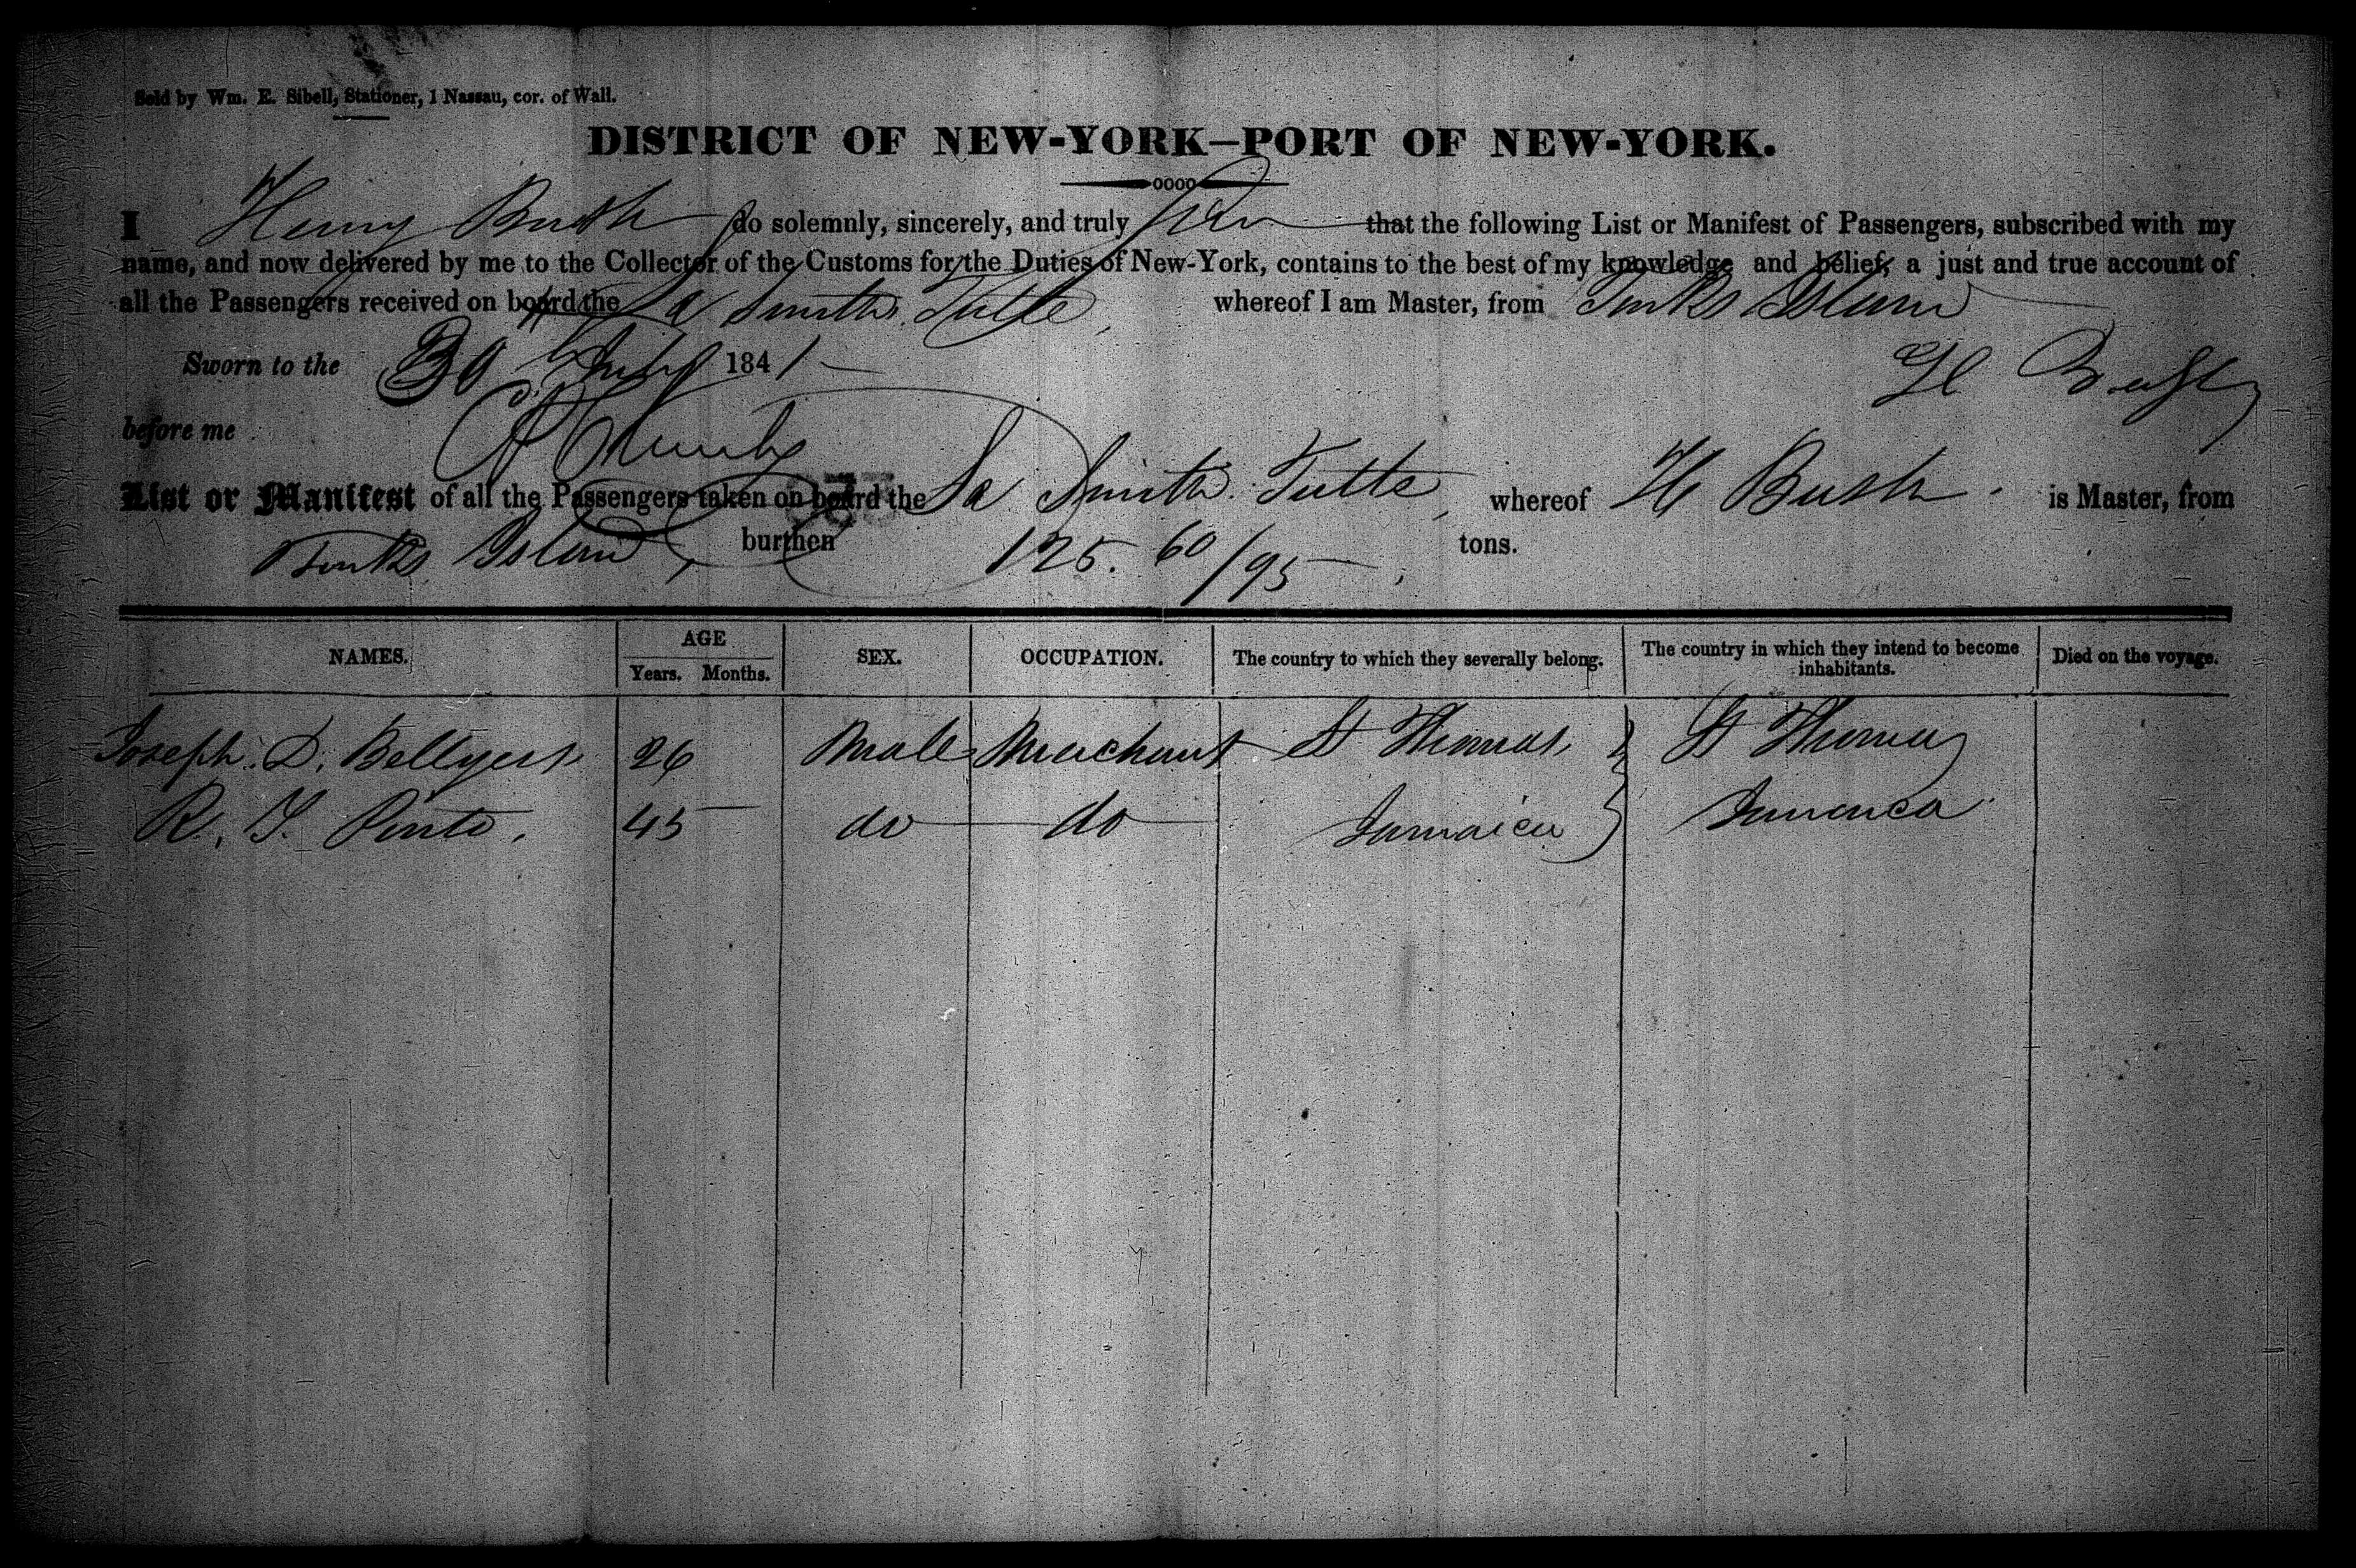 Sold by Wm. E. Sibell, Stationer, 1 Nassau, cor. of Wall.
DISTRICT OF NEW-YORK—PORT OF NEW-YORK.
I Henry Bush do solemnly, sincerely, and truly that the following List or Manifest of Passengers, subscribed with my
name, and now delivered by me to the Collector of the Customs for the Duties of New-York, contains to the best of my knowledge and belief, a just and true account of
all the Passengers received on board the Smith Tuttle, whereof I am Master, from Turks Island
Sworn to the 30 July 1841 H Bush
before me
List or Manifest of all the Passengers taken on board the Smith Tuttle, whereof H Bush is Master, from
Turks Island, burthen 125. 60/95 tons.
NAMES. AGE Years. Months. SEX. OCCUPATION. The country to which they severally belong. The country in which they intend to become inhabitants. Died on the voyage.
Joseph D. 26 Male Merchant St Thomas St Thomas
R. J. Pinto, 45 do do Jamaica Jamaica